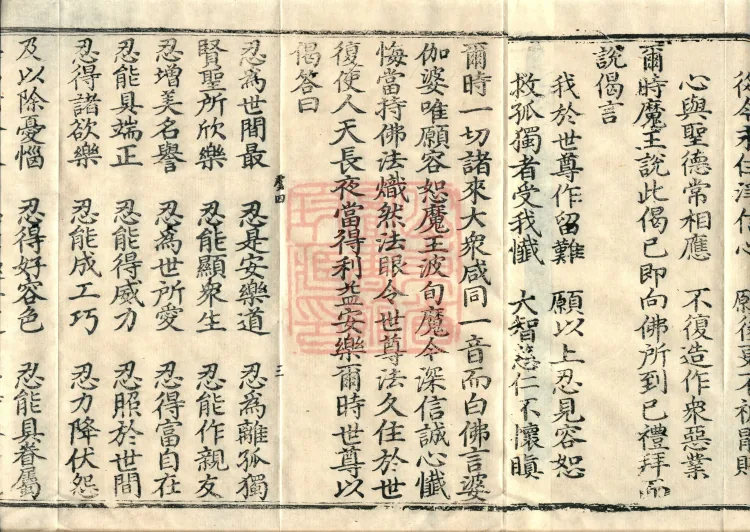 心與聖德常相應 不復造作衆惡業
爾時魔王說此偈已即向佛所到已禮拜而
說偈言
我於世尊作留難 願以上忍見容恕
救孤獨者受我懺 大智慈仁不懷瞋
爾時一切諸來大衆咸同一音而白佛言婆
伽婆唯願容恕魔王波旬魔今深信誠心懺
悔當持佛法熾然法眼令世尊法久住於世
復使人天長夜當得利益安樂爾時世尊以
偈答曰
虛四 三
忍為世間最 忍是安樂道 忍為離孤獨
賢聖所欣樂 忍能顯衆生 忍能作親友
忍增美名譽 忍為世所愛 忍得富自在
忍能具端正 忍能得威力 忍照於世間
忍得諸欲樂 忍能成工巧 忍力降伏怨
及以除憂惱 忍得好容色 忍能具眷屬